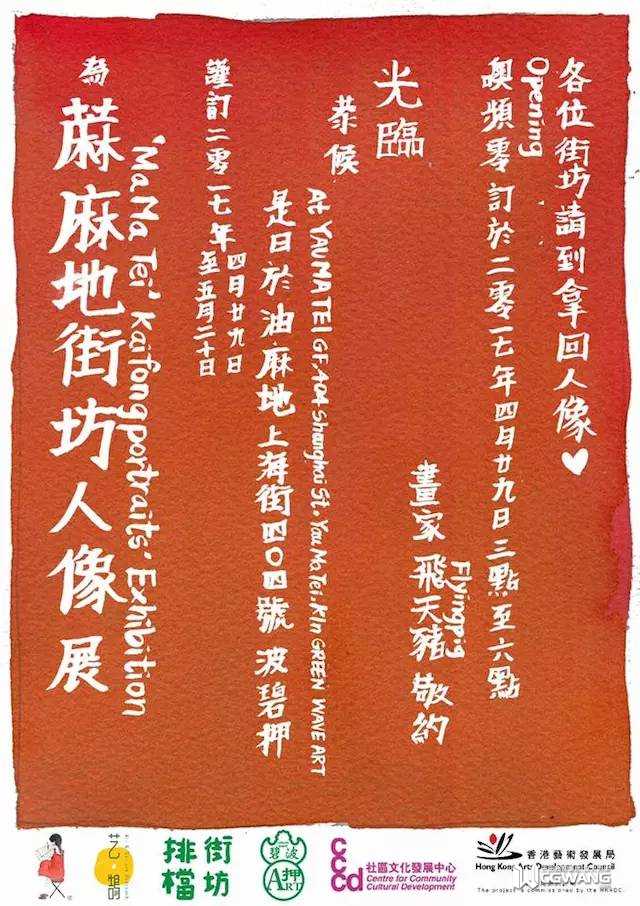 為蔴麻地街坊人像展
'Ma Ma Tei' Kaifong portraits' Exhibition
謹訂二零一七年
四月廿九日
至五月二十日
是日於油麻地上海街四〇四號波碧押
At YAU MA TEI GF, 404 Shanghai St. Yau Ma Tei. Kln GREEN WAVE ART
恭候
光臨
畫家飛天豬敬約
Flyingpig
噢頻零訂於二零一七年四月廿九日三點至六點
Opening
各位街坊請到拿回人像♥
艺·鵲
街坊
排檔
碧波
押
ART
CCCd
社區文化發展中心
Centre for Community
Cultural Development
香港藝術發展局
Hong Kong Arts Development Council
GEWANG